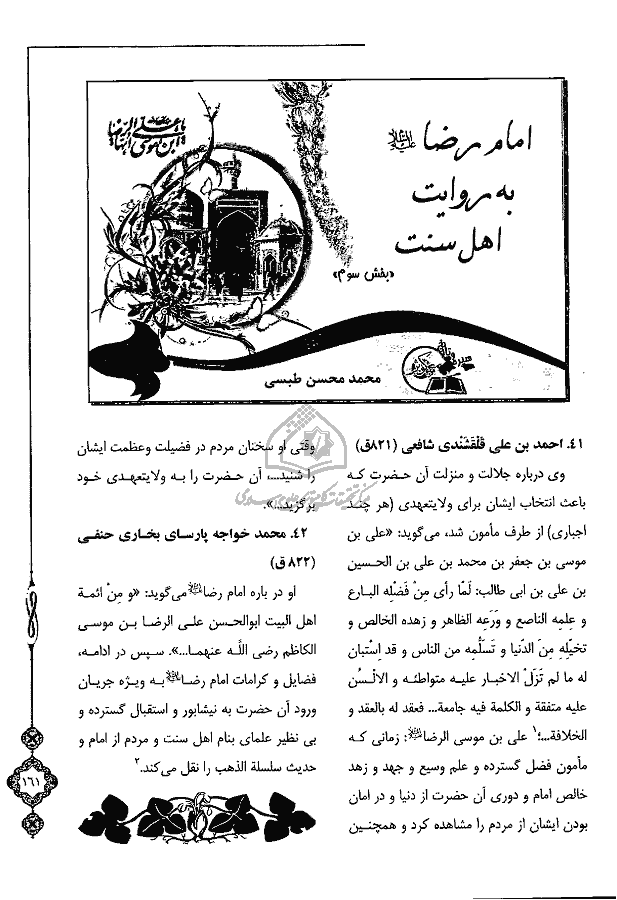 امام رضا علیه السلام
به روایت
اهل سنت
«بخش سوم»
محمد محسن طبسی
۴۱. احمد بن علی قَلْقَشَندی شافعی (۸۲۱ق)
وی درباره جلالت و منزلت آن حضرت که
باعث انتخاب ایشان برای ولایتعهدی (هر چند
اجباری) از طرف مأمون شد، می‌گوید: «علی بن
موسی بن جعفر بن محمد بن علی بن الحسین
بن علی بن ابی طالب: لَمّا رأی مِنْ فَضْلِه البارع
و عِلمِه الناصع و وَرَعِه الظاهر و زهده الخالص و
تخیّلِهِ مِنَ الدّنیا و تَسَلُّمِه من الناس و قد اِسْتبان
له ما لم تَزَلْ الاخبار علیه متواطئه و الالْسُن
علیه متفقة و الکلمة فیه جامعة... فعقد له بالعقد و
الخلافة...؛۱ علی بن موسی الرضا علیه السلام: زمانی که
مأمون فضل گسترده و علم وسیع و جهد و زهد
خالص امام و دوری آن حضرت از دنیا و در امان
بودن ایشان از مردم را مشاهده کرد و همچنین
وقتی او سخنان مردم در فضیلت وعظمت ایشان
را شنید...، آن حضرت را به ولایتعهدی خود
برگزید...».
۴۲. محمد خواجه پارسای بخاری حنفی
(۸۲۲ ق)
او در باره امام رضا علیه السلام می‌گوید: «و مِنْ ائمة
اهل البیت ابوالحسن علی الرضا بن موسی
الکاظم رضی اللّه عنهما...». سپس در ادامه،
فضایل و کرامات امام رضا علیه السلام به ویژه جریان
ورود آن حضرت به نیشابور و استقبال گسترده و
بی نظیر علمای بنام اهل سنت و مردم از امام و
حدیث سلسلة الذهب را نقل می‌کند.۲
۱۶۱